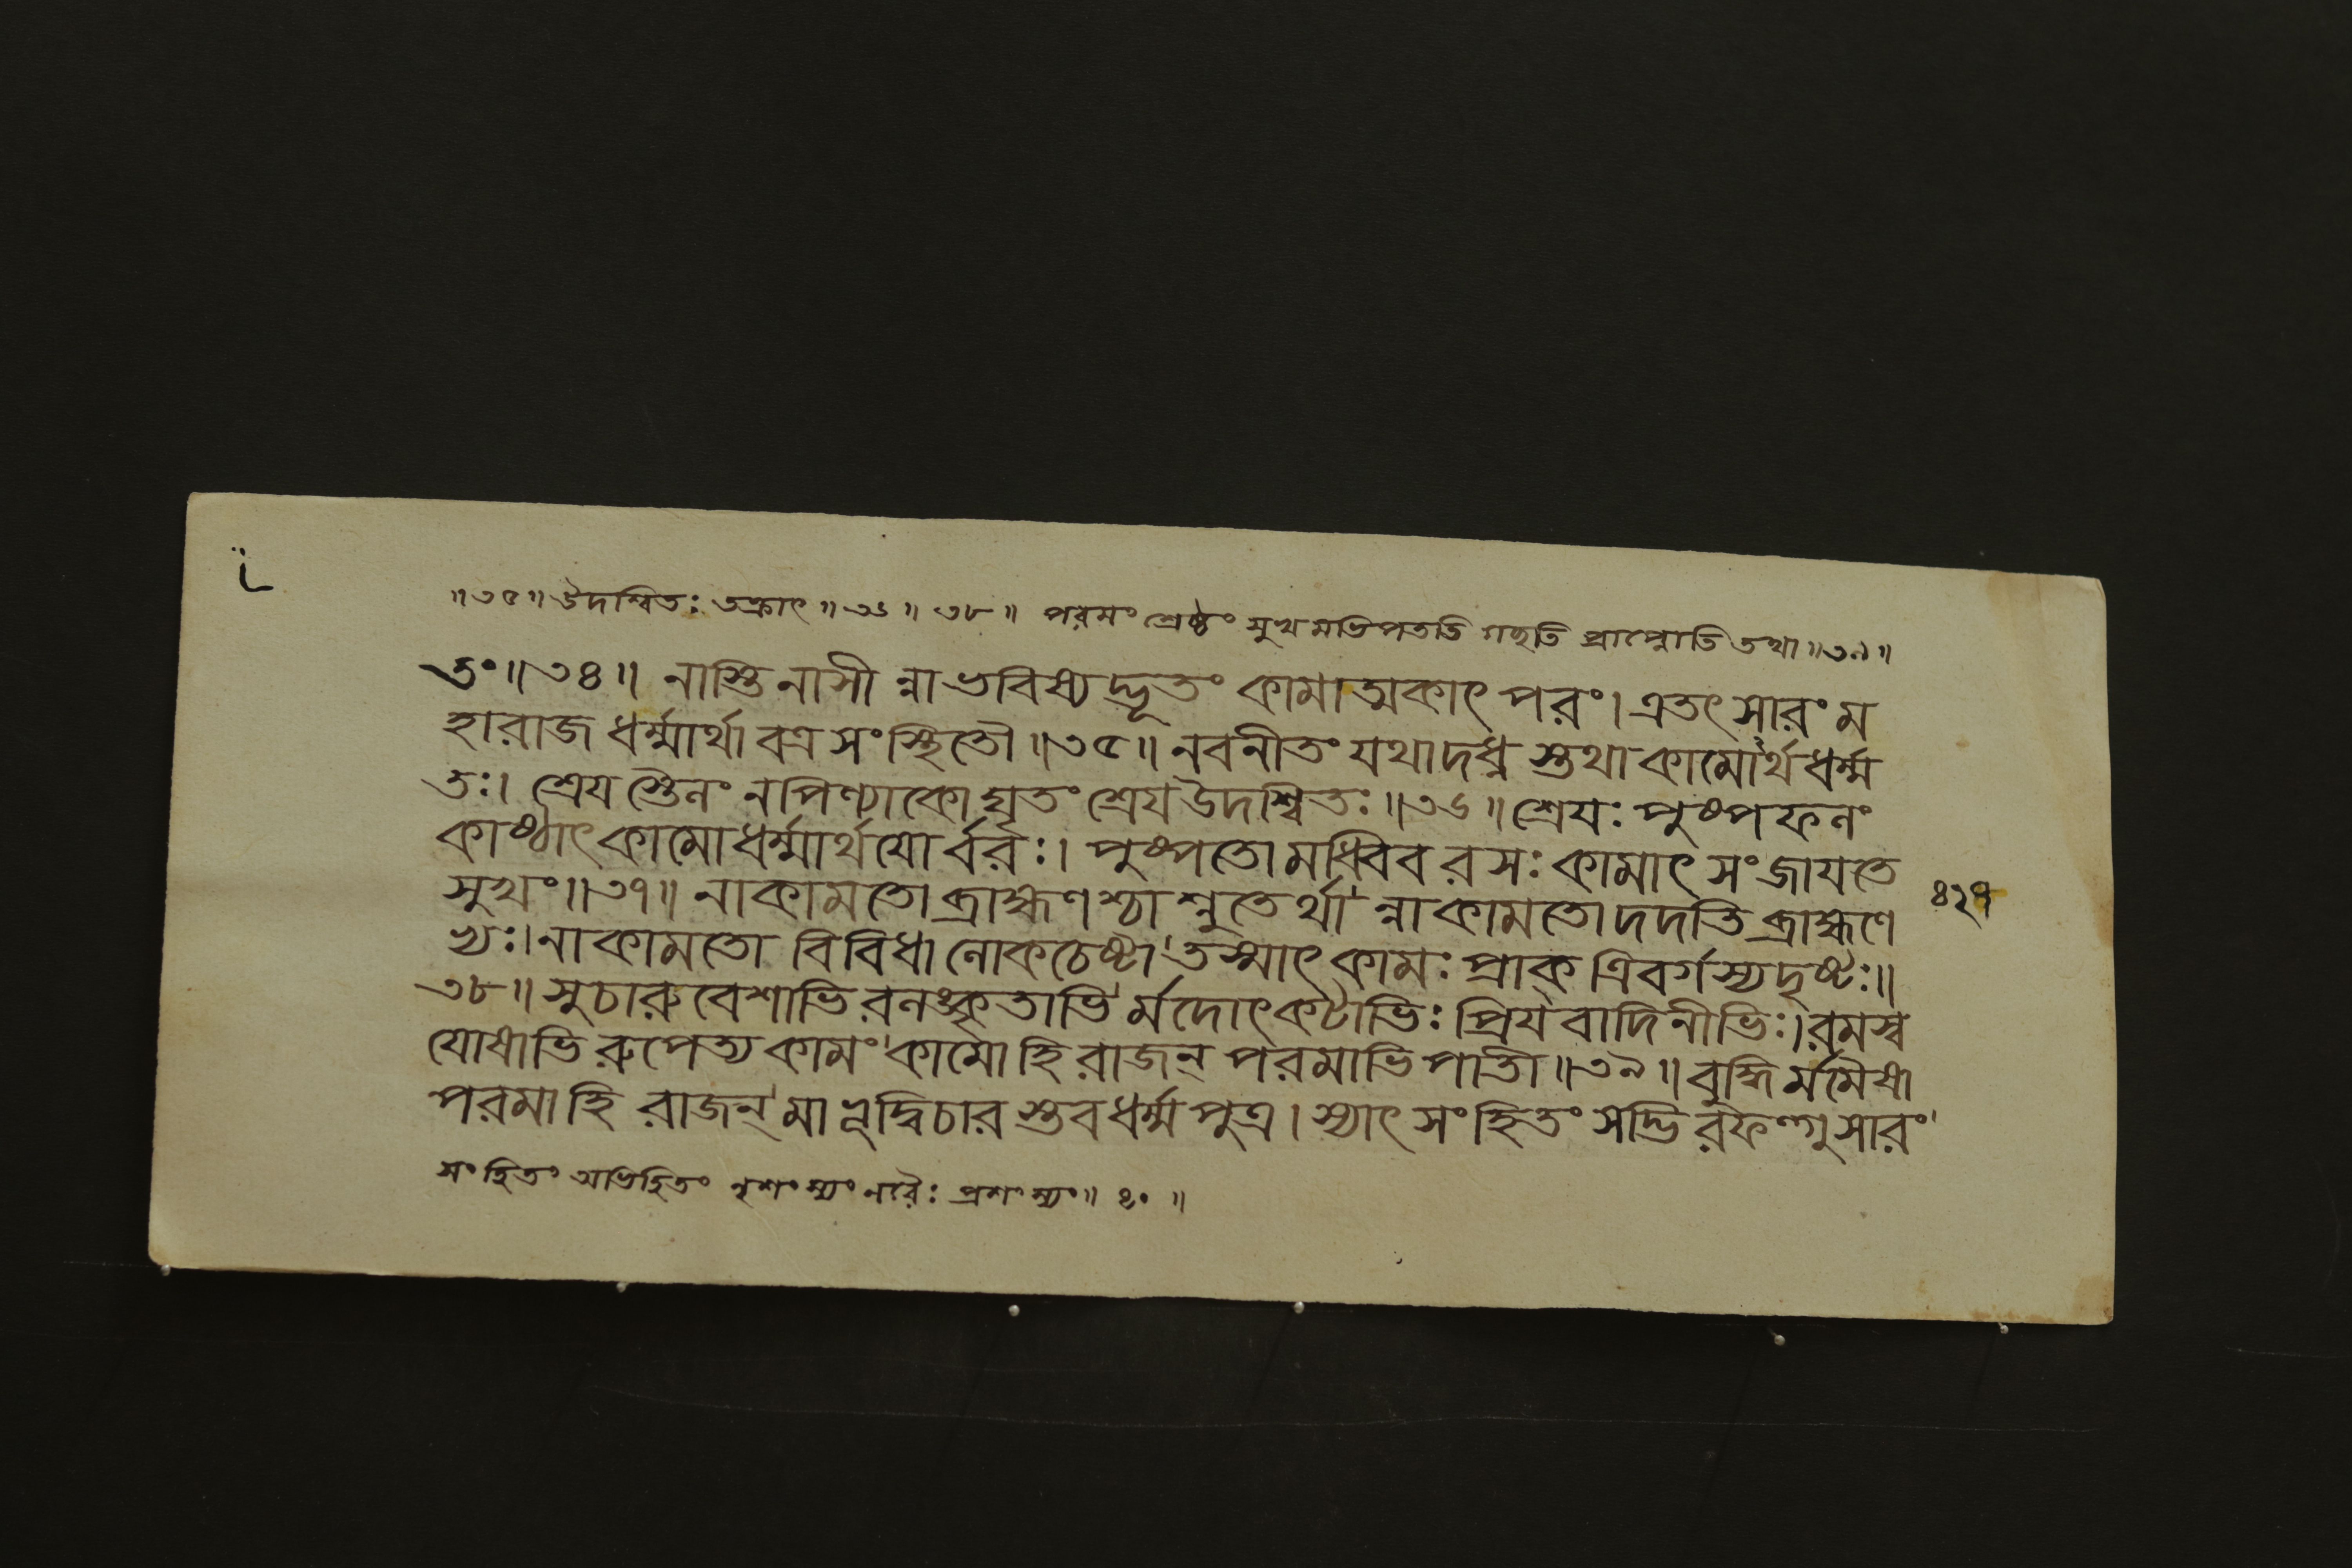 ॥৩৫॥ উদশ্বিতঃ তক্রাৎ ॥৩৬॥ ৩৮॥ পরমং শ্রেষ্ঠং সুখমভিপততি গছতি প্রাপ্নোতি তথা॥৩৯॥
তং॥৩৪॥ নাস্তি নাসী ন্নাভবিষ্যদ্ভূতং কামাত্মকাৎ পরং। এতৎ সারং ম
হারাজ ধর্ম্মার্থা বত্র সংস্থিতৌ॥৩৫॥ নবনীতং যথা দধ্ন স্তথা কামোর্থধর্ম্ম
তঃ। শ্রেয স্তৈলং ন পিণ্যাকো ঘৃতং শ্রেয উদশ্বিতঃ॥৩৬॥ শ্রেযঃ পুষ্পফলং
কাষ্ঠাৎ কামো ধর্ম্মার্থযো র্ব্বরঃ। পুষ্পতো মধ্বিব রসঃ কামাৎ সংজাযতে
সুখং॥৩৭॥ নাকামতো ব্রাহ্মণ শ্চাশ্নুতের্থা' ন্নাকামতো দদতি ব্রাহ্মণে
ভ্যঃ।নাকামতো বিবিধা লোকচেষ্টা' তস্মাৎ কামঃ প্রাক্ ত্রিবর্গস্য দৃষ্টঃ॥
৩৮॥ সুচারুবেশাভি রলঙ্কৃতাভি' র্মদোৎকটাভিঃ প্রিযবাদিনীভিঃ।রমস্ব
যোষাভি রুপেত্য কামং' কামো হি রাজন্ পরমাভিপাতী॥৩৯॥ বুদ্ধি র্মমৈষা
পরমা হি রাজন্' মা ভূদ্বিচার স্তব ধর্ম্মপুত্র। স্যাৎ সংহিতং সদ্ভি রফল্গুসারং'
সংহিতং অভিহিতং নৃশংস্যং নরৈঃ প্রশংস্যং॥ ৪০ ॥
৪২৭